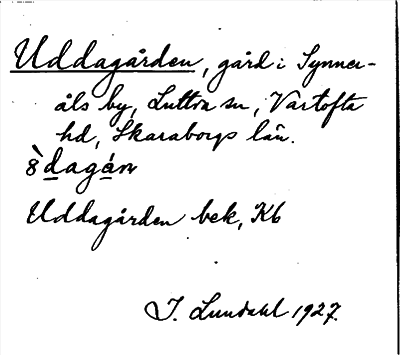 Uddagården, gård i Synner-
åls by, Luttra sn, Vartofta
hd, Skaraborgs län.
Uddagården bek, Kb
I. Lundahl 1927.